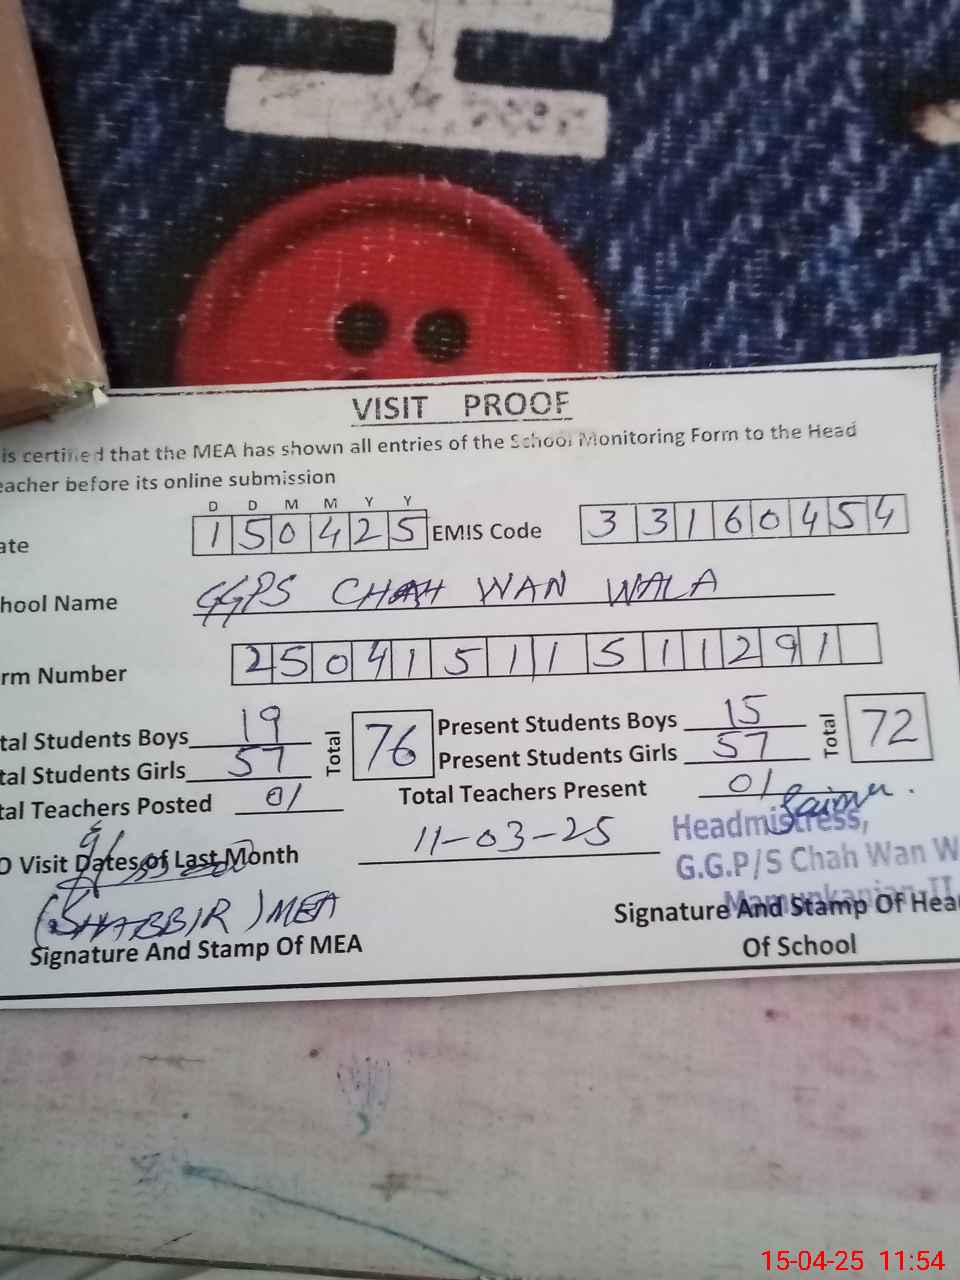 VISIT PROOF
is certified that the MEA has shown all entries of the School Monitoring Form to the Head
eacher before its online submission
D D M M Y Y
ate 1 5 0 4 2 5 EMIS Code 3 3 1 6 0 4 5 4
hool Name GGPS CHAH WAN WALA
rm Number 2 5 0 4 1 5 1 1 5 1 1 2 9 1
tal Students Boys 19 Total 76 Present Students Boys 15 Total 72
tal Students Girls 57 Present Students Girls 57
tal Teachers Posted 01 Total Teachers Present 01
O Visit Dates of Last Month 11-03-25
Headmistress,
G.G.P/S Chah Wan W
Mamunkanjan-II
(SHABBIR) MEA
Signature And Stamp Of MEA
Signature And Stamp Of Hea
Of School
15-04-25 11:54